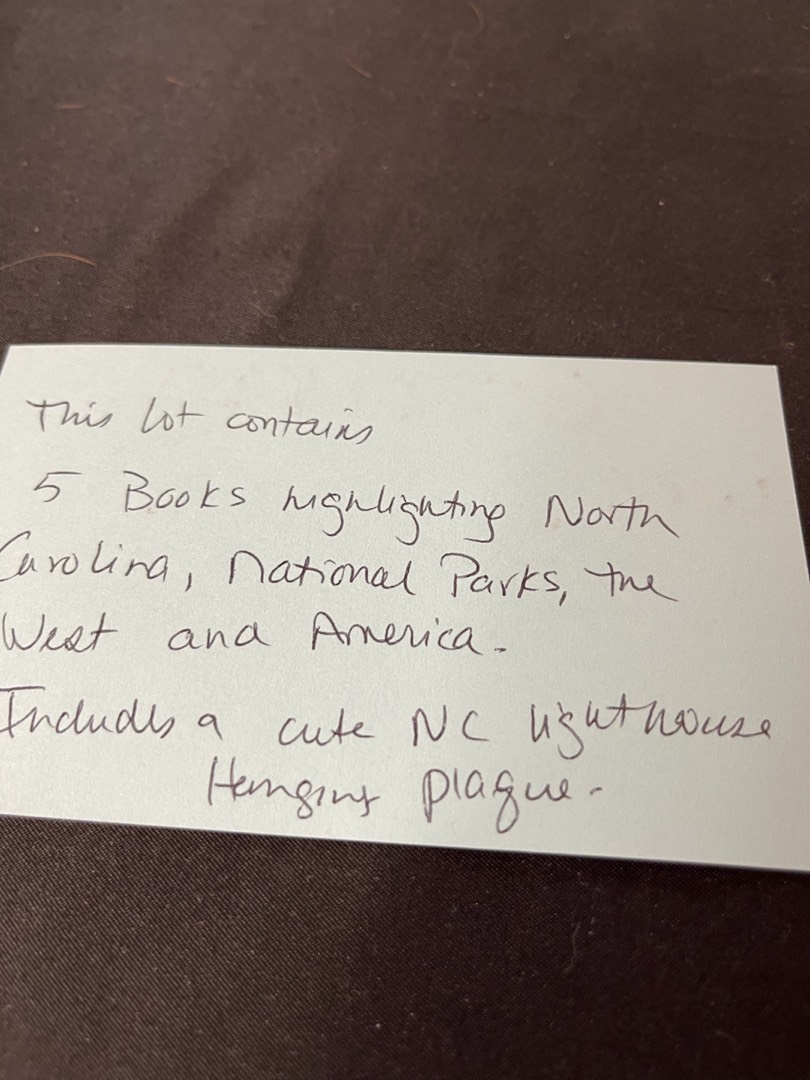 This lot contains
5 Books highlighting North
Carolina, National Parks, the
West and America.
Includes a cute NC lighthouse
Hanging plaque.